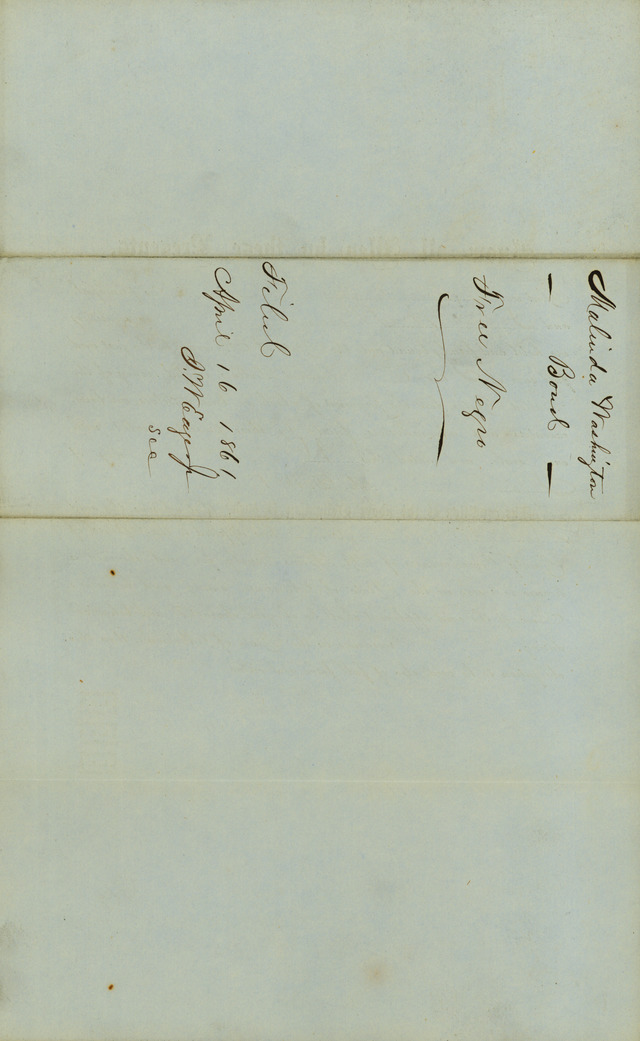 Malinda Washington
— Bond —
Free Negro
Filed
April 16 1861